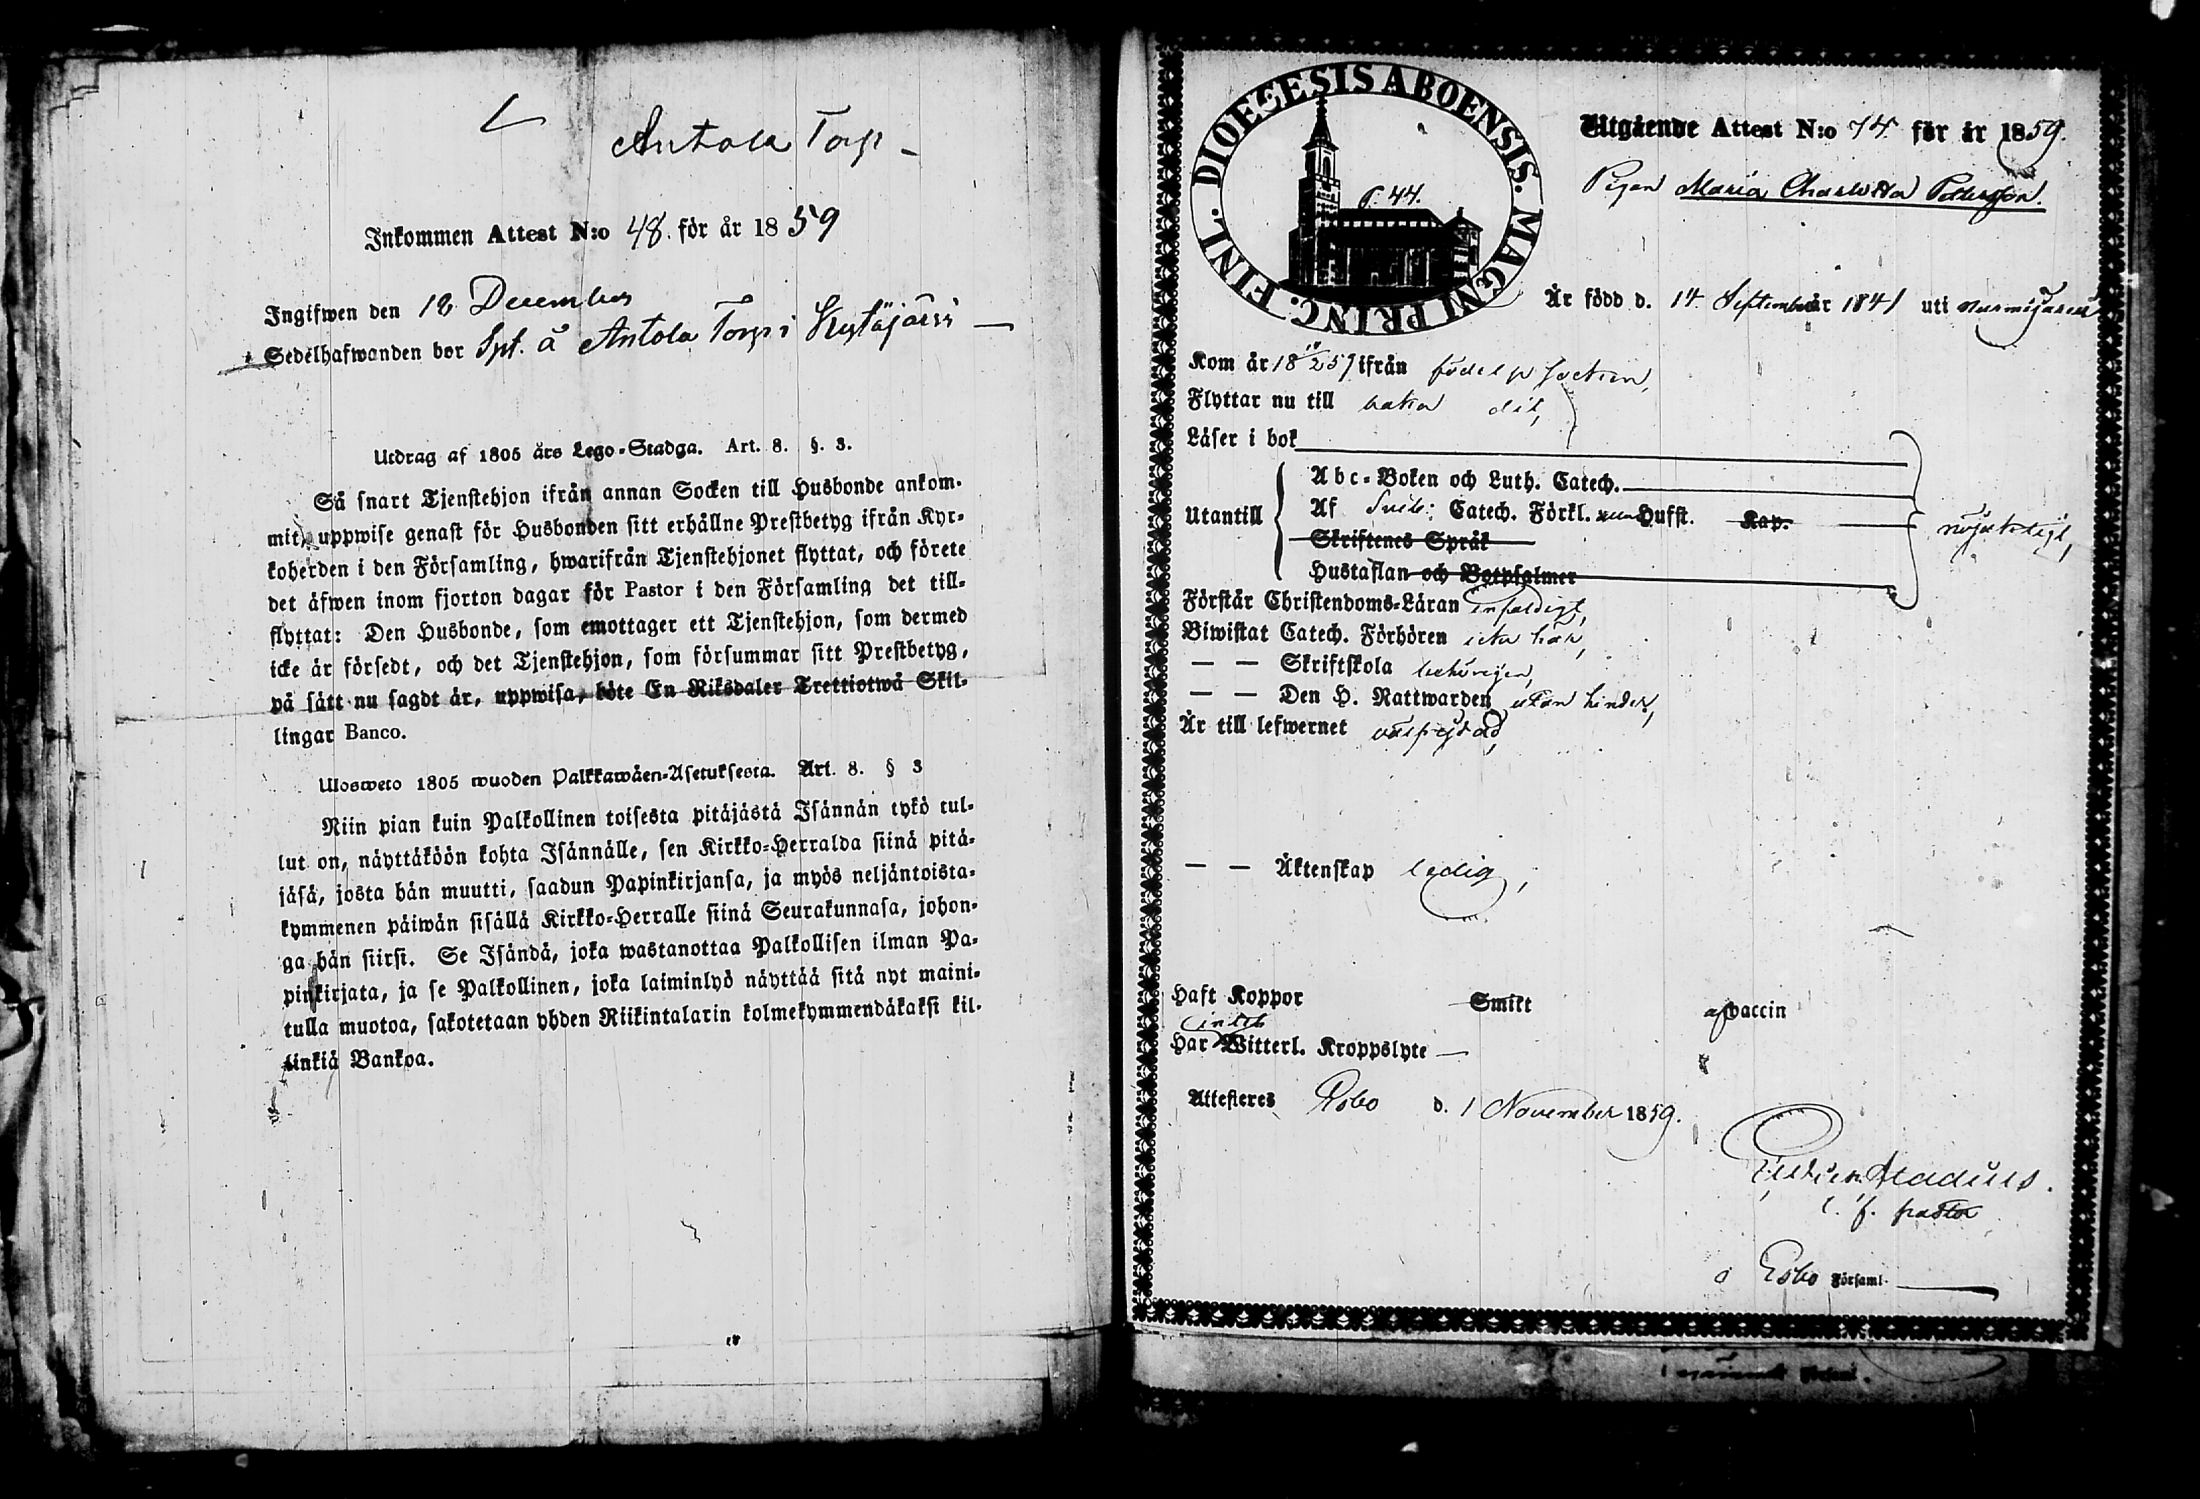 Antola Torp
Inkommen Attest N:o 48. för år 1859
Ingifwen den 12 December
Sedelhafwanden bor Spt. å Antola Torp i Kytäjärvi
Utdrag af 1805 års Lego-Stadga. Art. 8. §. 3.
Så snart Tjenstehjon ifrån annan Socken till Husbonde ankom-
mit, uppwise genast för Husbonden sitt erhållne Prestbetyg ifrån Kyr-
koherden i den Församling, hwarifrån Tjenstehjonet flyttat, och förete
det äfwen inom fjorton dagar för Pastor i den Församling det till-
flyttat: Den Husbonde, som emottager ett Tjenstehjon, som dermed
icke är försedt, och det Tjenstehjon, som försummar sitt Prestbetyg,
på sätt nu sagdt är, uppwisa, böte En Riksdaler Trettiotwå Skil-
lingar Banco.
Ulosweto 1805 wuoden Palkkawäen-Asetuksesta. Art. 8. § 3
Niin pian kuin Palkollinen toisesta pitäjästä Isännän tykö tul-
lut on, näyttäköön kohta Isännälle, sen Kirkko-Herralda siinä pitä-
jäsä, josta hän muutti, saadun Papinkirjansa, ja myös neljäntoista-
kymmenen päiwän sisällä Kirkko-Herralle siinä Seurakunnasa, johon-
ga hän siirsi. Se Isändä, joka wastanottaa Palkollisen ilman Pa-
pinkirjata, ja se Palkollinen, joka laiminlyö näyttää sitä nyt maini-
tulla muotoa, sakotetaan yhden Riikintalarin kolmekymmendäkaksi kil-
linkiä Bankoa.
DIOECESIS ABOENSIS. MAGNI PRINC. FINL.
P. 44.
Utgående Attest N:o 74 för år 1859.
Pigan Maria Charlotta Pettersson.
Är född d. 14 September år 1841 uti Nurmijärvi
Kom år 18 57 ifrån födelse socknen,
Flyttar nu till baka dit,
Läser i bok
Abc-Boken och Luth. Catech.
Utantill Af Sveb: Catech. Förkl. Hufst. Kap.
Skriftenes Språk
Hustaflan och Botpsalmer
nöjaktigt,
Förstår Christendoms-Läran enfaldigt,
Biwistat Catech. Förhören icke här,
— — Skriftskola behörigen,
— — Den H. Nattwarden utan hinder,
Är till lefwernet välfrejdad,
— — Äktenskap ledig,
Haft Koppor Smitt af vaccin
intet
Har Witterl. Kroppslyte —
Attesteres Esbo d. 1 November 1859.
Stadius.
v. f. pastor
i Esbo Församl.